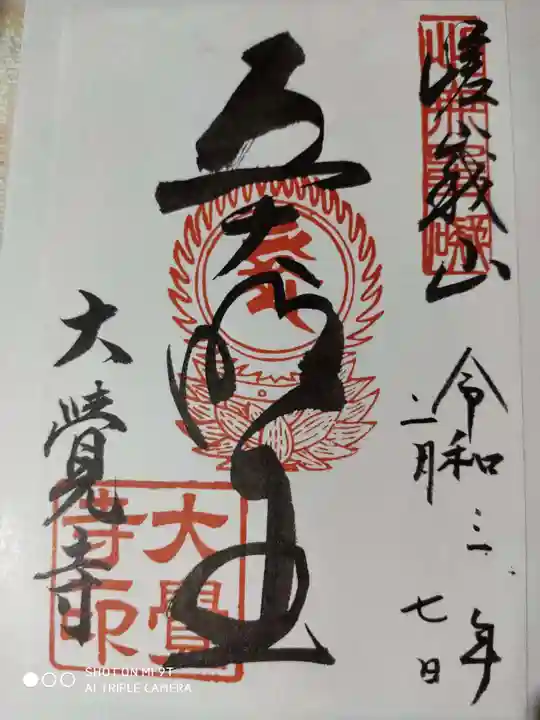 嵯峨山
令和三年
二月七日
五大明王
大覺寺
大覺寺印
SHOT ON MI 9T
AI TRIPLE CAMERA